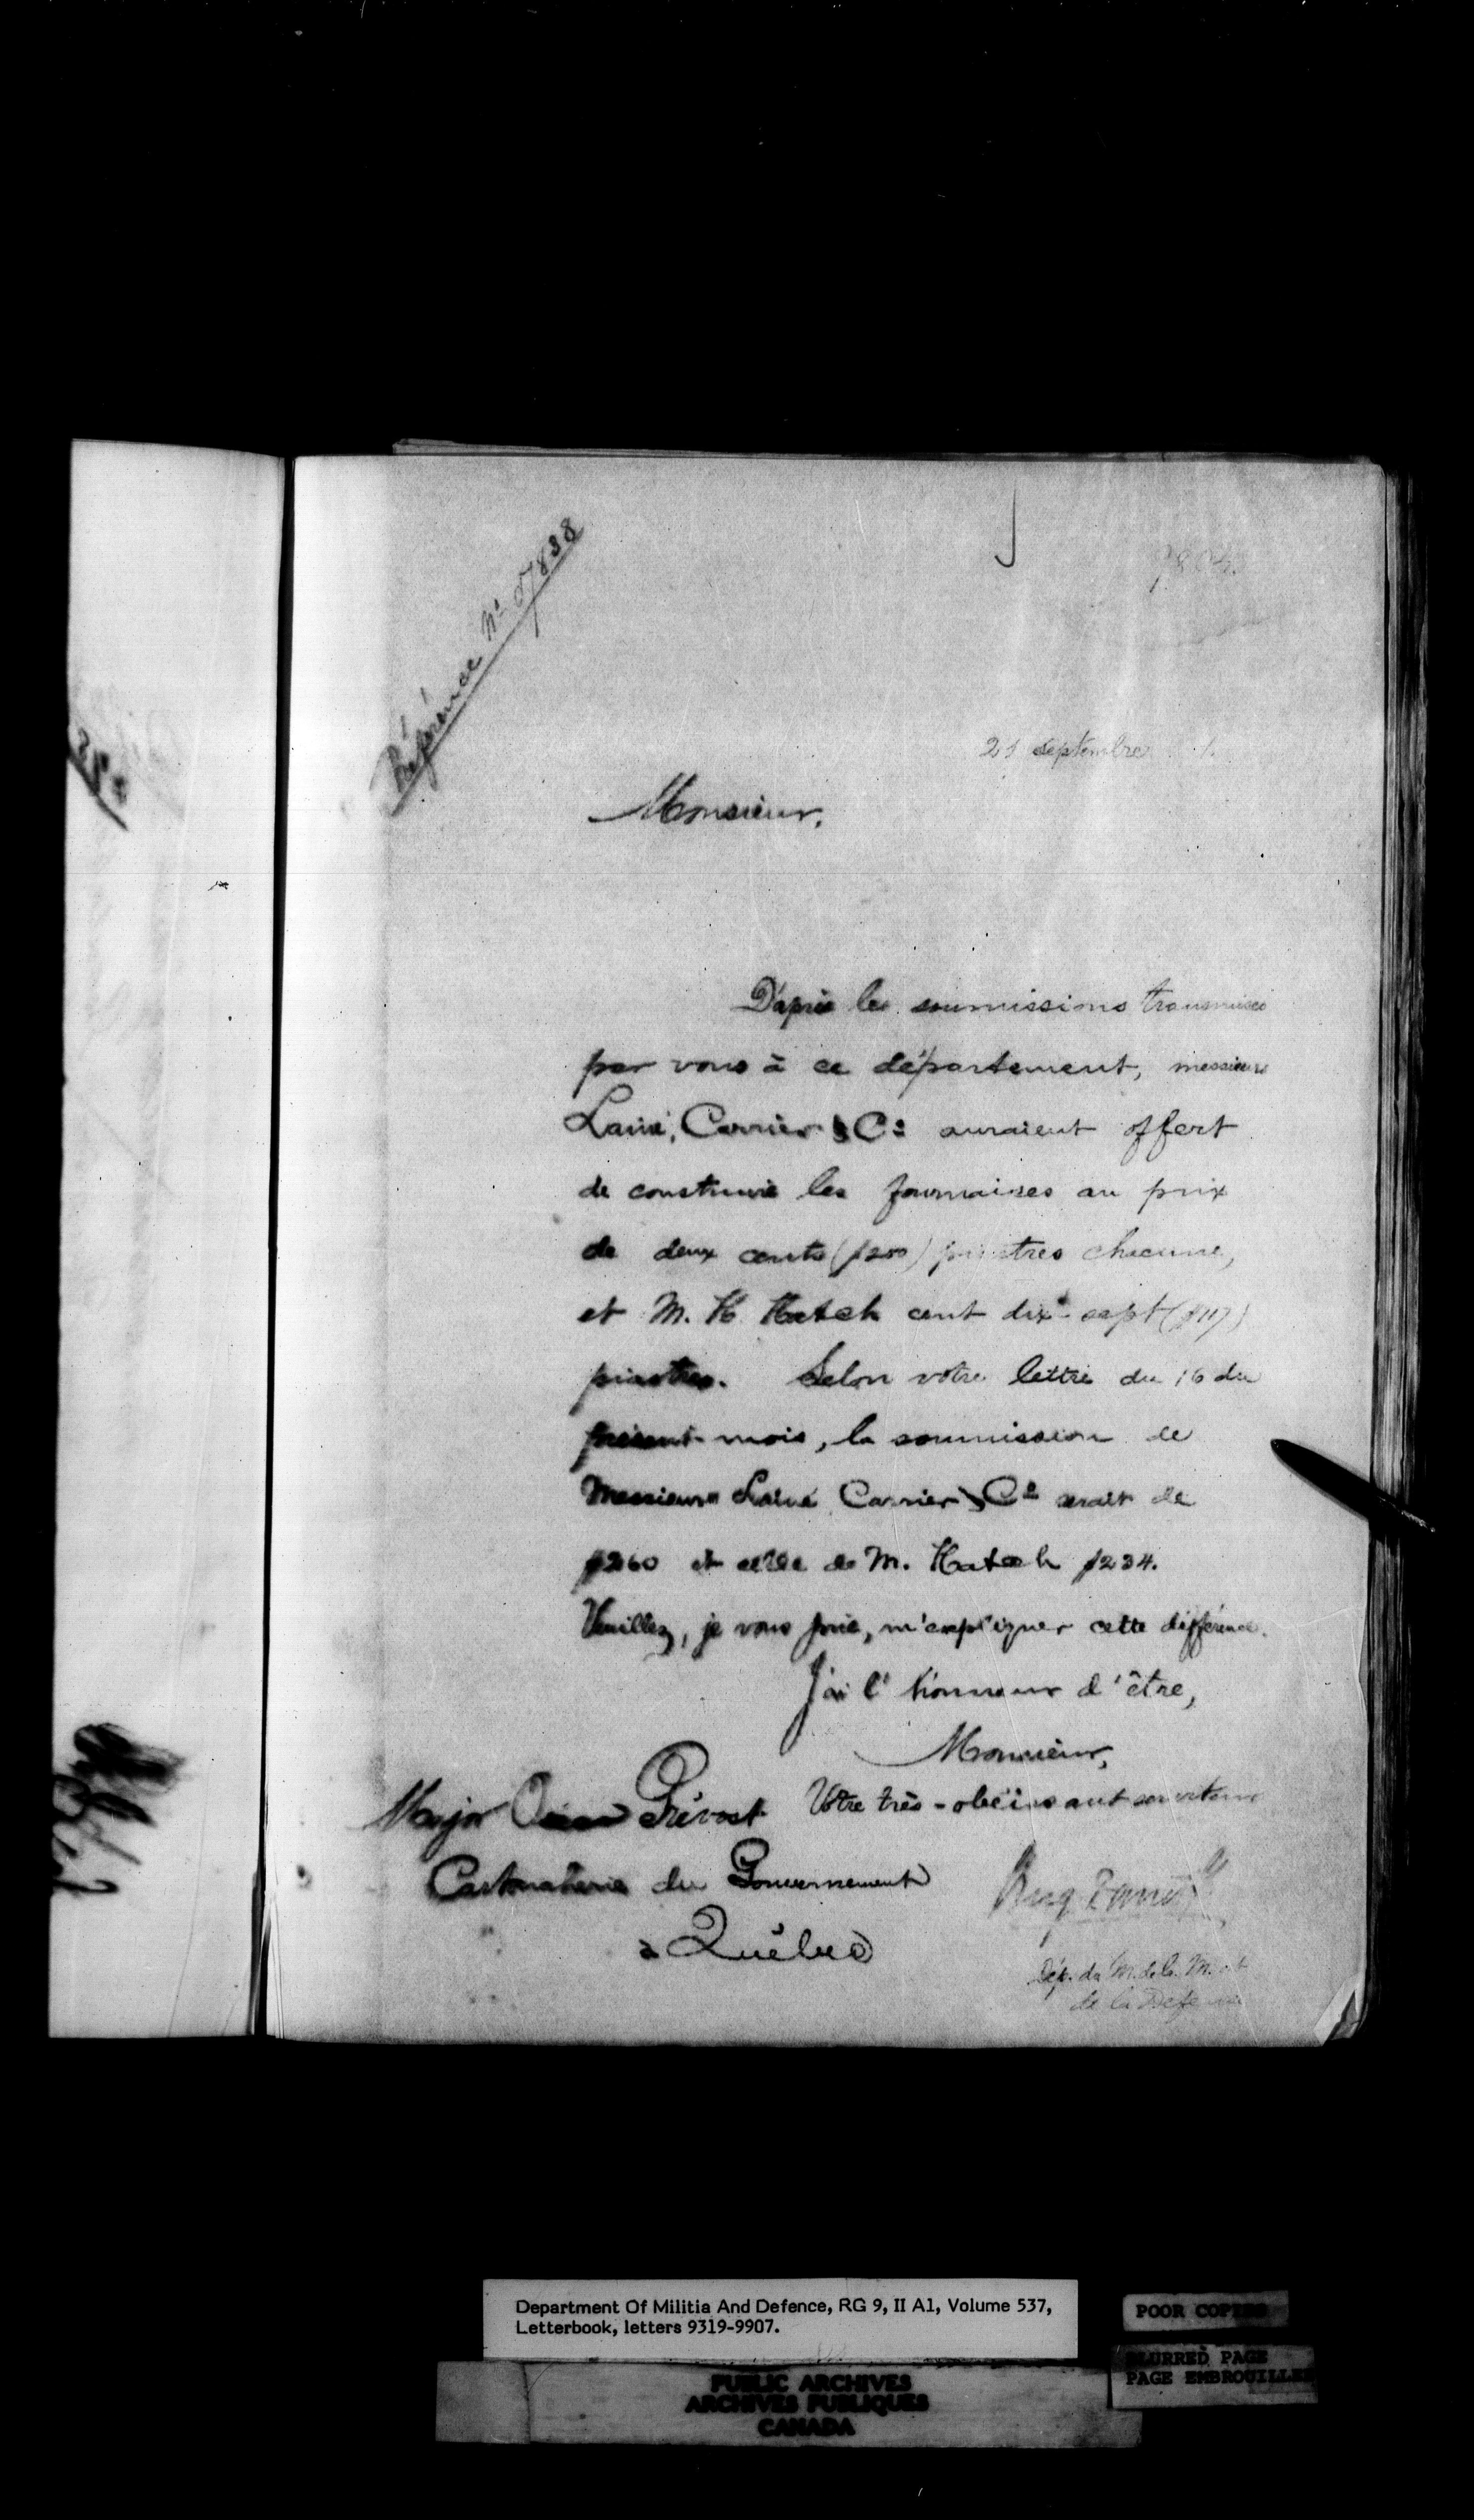 Référence No 07838
21 septembre
Monsieur,
D'après les soumissions transmises
par vous à ce département, messieurs
Lainé, Carrier & Cie auraient offert
de construire les fournaises au prix
de deux cents ($200) piastres chacune,
et M. H Hatch cent dix-sept ($117)
piastres. Selon votre lettre du 16 du
présent mois, la soumission de
Messieurs Lainé Carrier & Cie serait de
$260 et celle de M. Hatch $234.
Veuillez, je vous prie, m'expliquer cette différence.
J'ai l'honneur d'être,
Monsieur,
Votre très-obéissant serviteur
Major Oscar Prévost
Cartoucherie du Gouvernement
à Québec
Dép. du M. de la M. et
de la Défense
Department Of Militia And Defence, RG 9, II A1, Volume 537,
Letterbook, letters 9319-9907.
POOR COPIES
BLURRED PAGE
PAGE EMBROUILLEE
PUBLIC ARCHIVES
ARCHIVES PUBLIQUES
CANADA